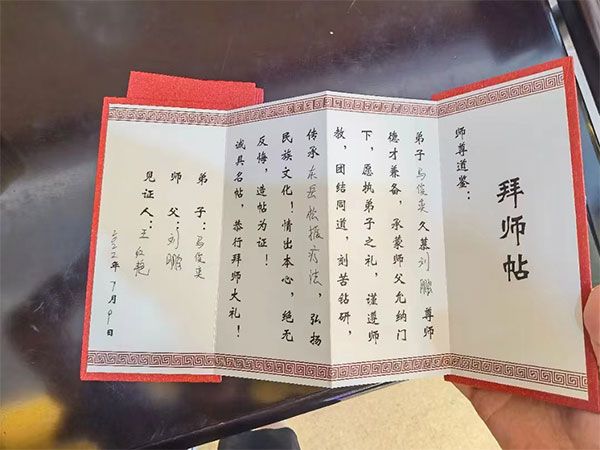 拜师帖
师尊道鉴：
弟子马俊英久慕刘鹏尊师
德才兼备，承蒙师父允纳门
下，愿执弟子之礼，谨遵师
教，团结同道，刻苦钻研，
传承东岳松振疗法，弘扬
民族文化！情出本心，绝无
反悔，造帖为证！
诚具名帖，恭行拜师大礼！
弟子：马俊英
师父：刘鹏
见证人：王红艳
年7月9日